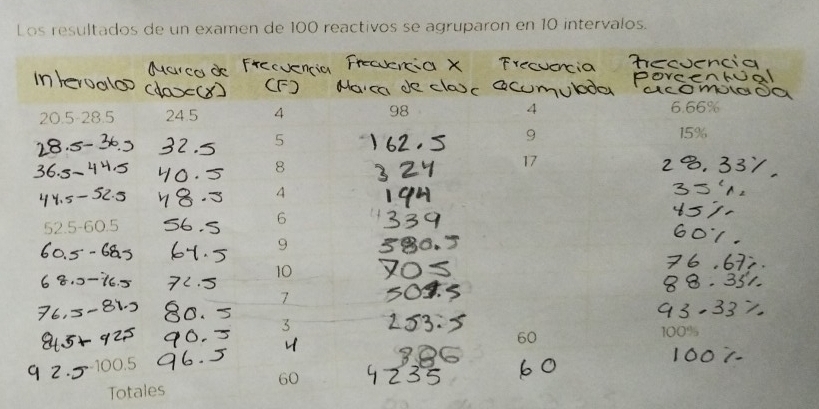 Los resultados de un examen de 100 reactivos se agruparon en 10 intervalos.
Intervalos Marca de clase(x) Frecuencia (F) Frecuencia x Marca de clase Frecuencia acumulada Frecuencia porcentual acomulada
20.5-28.5 24.5 4 98 4 6.66%
28.5-36.5 32.5 5 162.5 9 15%
36.5-44.5 40.5 8 324 17 28.33%
44.5-52.5 48.5 4 194 35%
52.5-60.5 56.5 6 339 45%
60.5-68.5 64.5 9 580.5 60%
68.5-76.5 72.5 10 705 76.67%
76.5-84.5 80.5 7 507.5 88.33%
84.5+ 92.5 90.5 3 253.5 93.33%
92.5-100.5 96.5 4 886 60 100%
Totales 60 4235 60 100%